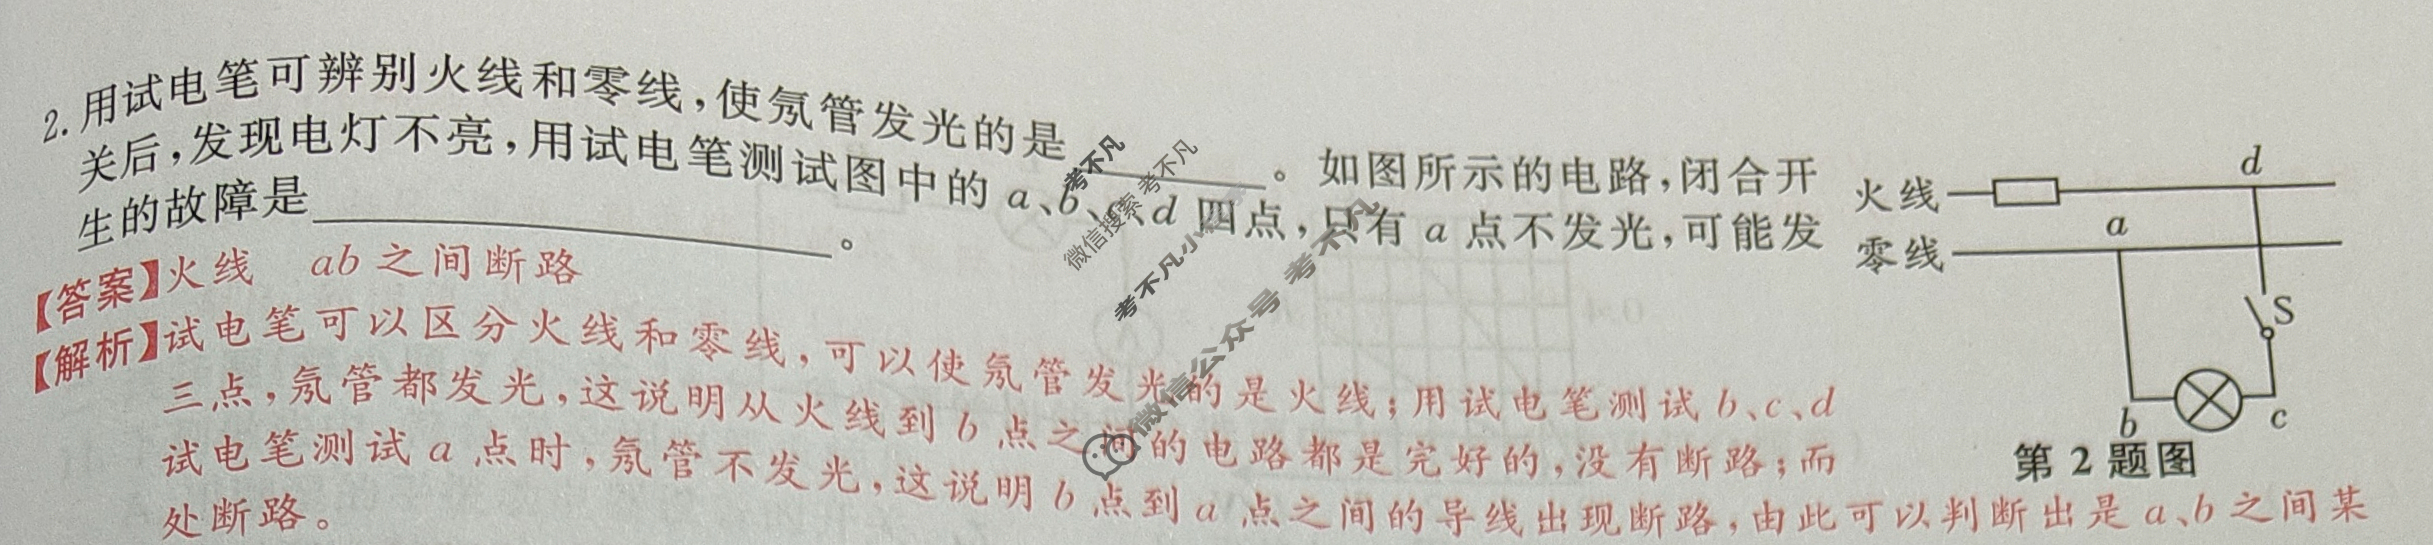 2.用试电笔可辨别火线和零线,使氖管发光的是________。如图所示的电路,闭合开
关后,发现电灯不亮,用试电笔测试图中的a、b、c、d四点,只有a点不发光,可能发
生的故障是________________。
【答案】火线 ab之间断路
【解析】试电笔可以区分火线和零线,可以使氖管发光的是火线;用试电笔测试b、c、d
三点,氖管都发光,这说明从火线到b点之间的电路都是完好的,没有断路;而
试电笔测试a点时,氖管不发光,这说明b点到a点之间的导线出现断路,由此可以判断出是a、b之间某
处断路。
火线
零线
d
a
S
b
c
第2题图
考不凡
微信搜索 考不凡
考不凡小
微信公众号 考不凡